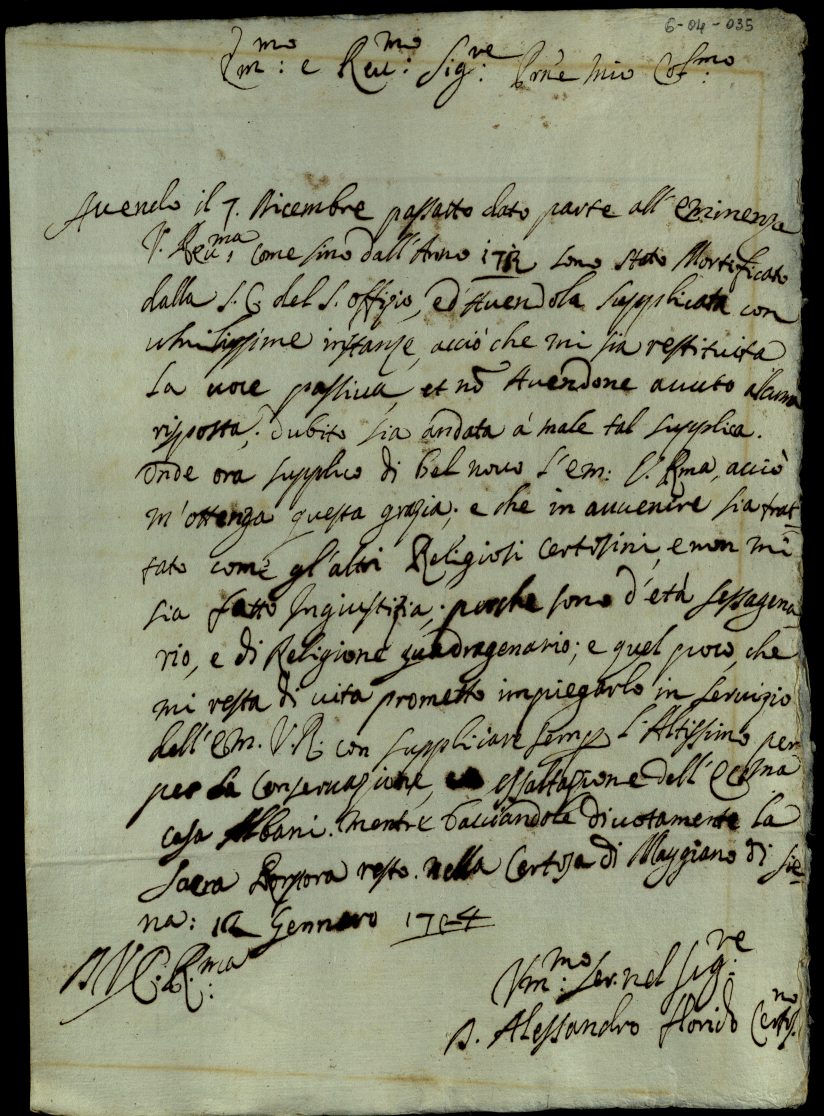 6-04-035
Em:mo e Reu:mo Sig:re Prne Mio Col:mo
Auendo il 7. Dicembre passatto dato parte all'eminenza
V. Reu:ma, come sino dall'Anno sono stato Mortificato
dalla S. C. del S. offizio, ed'Auendola supplicata con
umilissime instanze, acciò che mi sia restituita
la uoce passiua, et nõ Auendone auuto alcuna
risposta, dubito sia andata à male tal supplica.
Onde ora supplico di bel nouo l'em: V. Rma, acciò
m'ottenga questa grazia; e che in auuenire sia trat-
tato come gl'altri Religiosi Certosini, e non mi
sia fatto Ingiustizia; perche sono d'età sessagena
rio, e di Religione quadragenario; e quel poco, che
mi resta di uita prometto impiegarlo in seruizio
dell'em. V. R. con suppliccare semp l'Altissimo per
per la Conseruazione, ed essaltazione dell'eccma
casa Albani. Mentre bacciandole diuotamente la
Sacra Porpora resto. nella Certosa di Maggiano di Sie-
na: 12 Gennaro
D V E. R:ma
Vm:mo Ser. nel Sig:re
D. Alessandro Florido Certos:no